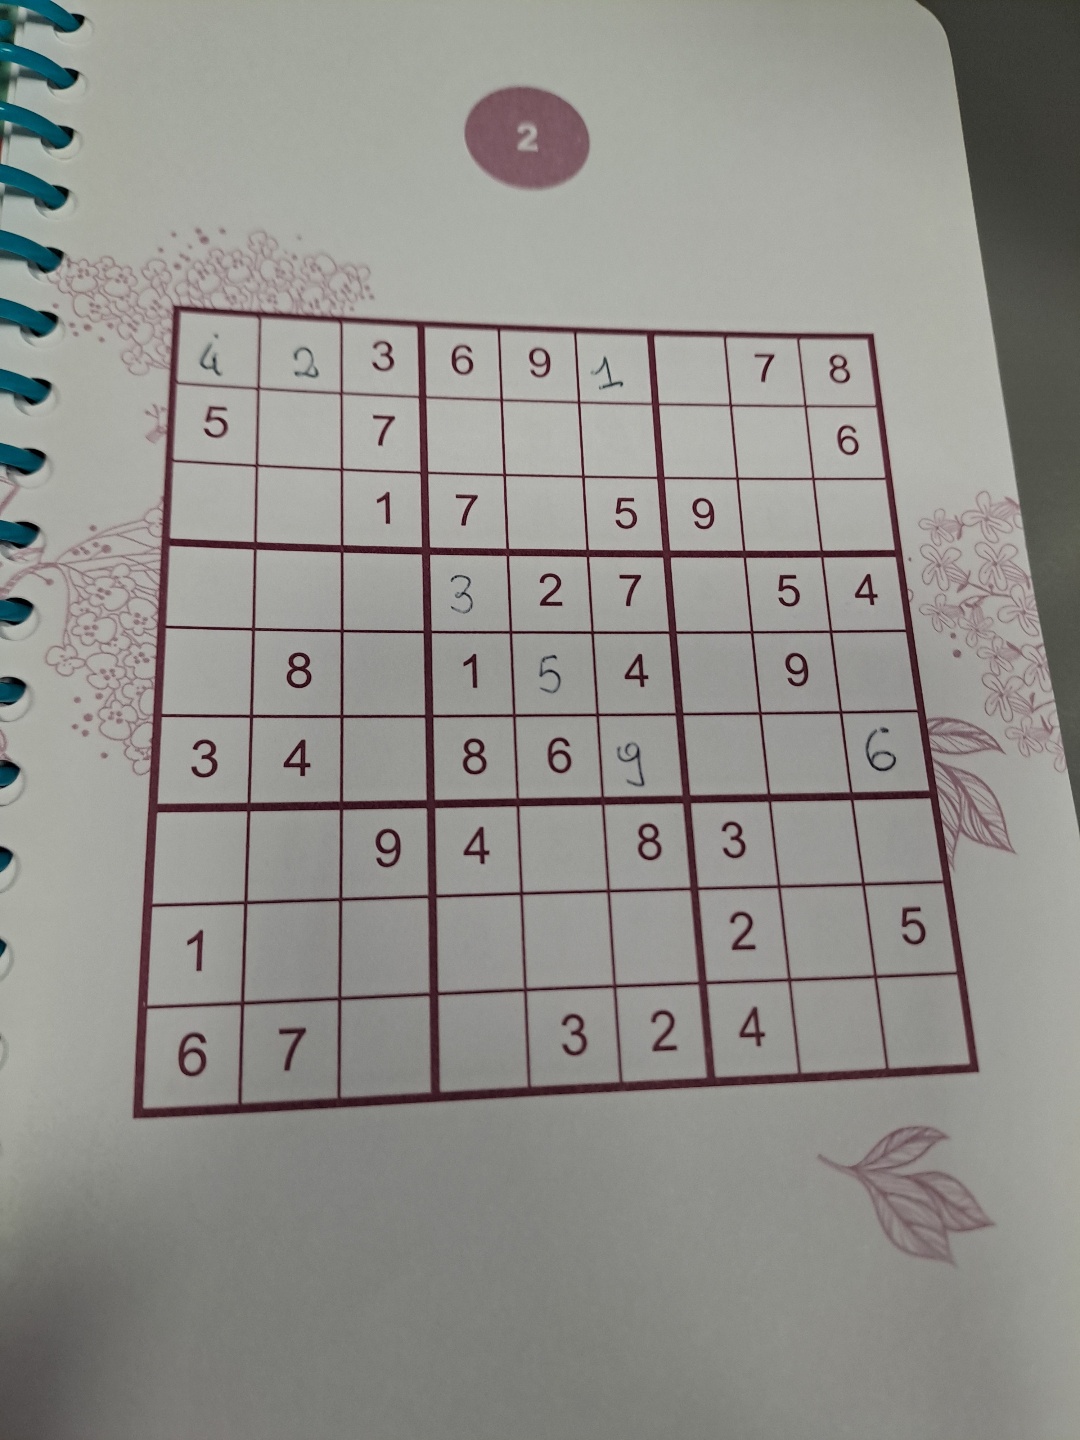 2
4 2 3 6 9 1 7 8
5 7 6
1 7 5 9
3 2 7 5 4
8 1 5 4 9
3 4 8 6 9 6
9 4 8 3
1 2 5
6 7 3 2 4